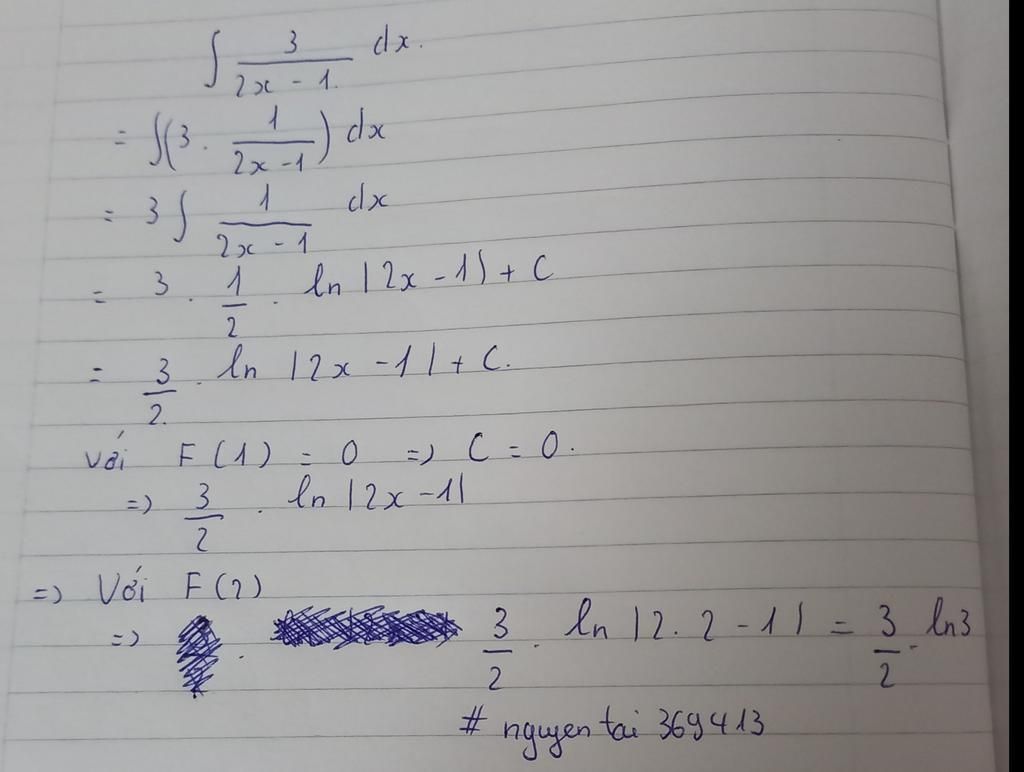 ∫ 3/(2x - 1) dx.
= ∫(3 . 1/(2x - 1)) dx
= 3 ∫ 1/(2x - 1) dx
= 3 . 1/2 . ln |2x - 1| + C
= 3/2 . ln |2x - 1| + C.
Với F(1) = 0 => C = 0.
=> 3/2 . ln |2x - 1|
=> Với F(2)
=> . 3/2 . ln |2. 2 - 1| = 3/2 . ln3
# nguyen tai 369413